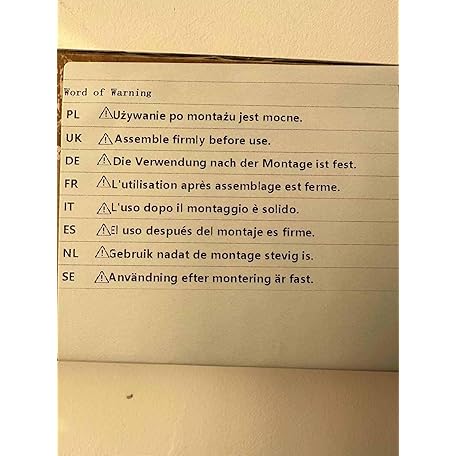 Word of Warning
PL ⚠Używanie po montażu jest mocne.
UK ⚠Assemble firmly before use.
DE ⚠Die Verwendung nach der Montage ist fest.
FR ⚠L'utilisation après assemblage est ferme.
IT ⚠L'uso dopo il montaggio è solido.
ES ⚠El uso después del montaje es firme.
NL ⚠Gebruik nadat de montage stevig is.
SE ⚠Användning efter montering är fast.